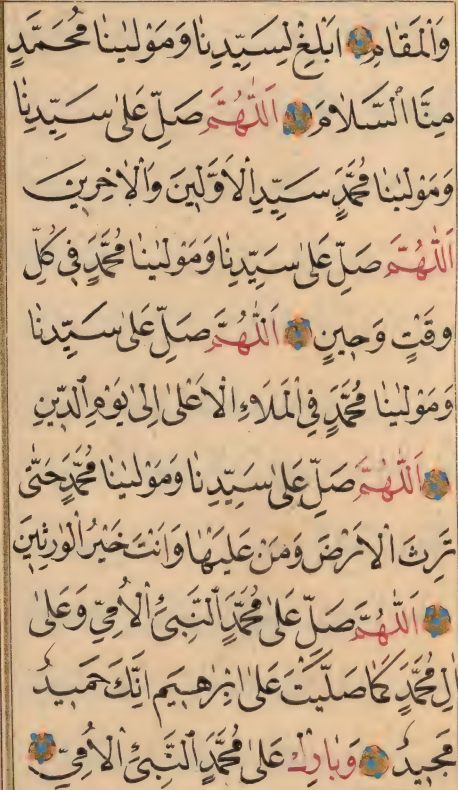 وَالْمَقَامِ اَبْلِغْ لِسَيِّدِنَا وَمَوْلٰينَا مُحَمَّدٍ
مِنَّا السَّلَامَ اَللّٰهُمَّ صَلِّ عَلٰى سَيِّدِنَا
وَمَوْلٰينَا مُحَمَّدٍ سَيِّدِ الْاَوَّلِينَ وَالْاٰخِرِينَ
اَللّٰهُمَّ صَلِّ عَلٰى سَيِّدِنَا وَمَوْلٰينَا مُحَمَّدٍ فِى كُلِّ
وَقْتٍ وَحِينٍ اَللّٰهُمَّ صَلِّ عَلٰى سَيِّدِنَا
وَمَوْلٰينَا مُحَمَّدٍ فِى الْمَلَاءِ الْاَعْلٰى اِلٰى يَوْمِ الدِّينِ
اَللّٰهُمَّ صَلِّ عَلٰى سَيِّدِنَا وَمَوْلٰينَا مُحَمَّدٍ حَتّٰى
تَرِثَ الْاَرْضَ وَمَنْ عَلَيْهَا وَاَنْتَ خَيْرُ الْوٰرِثِينَ
اَللّٰهُمَّ صَلِّ عَلٰى مُحَمَّدٍ النَّبِىِّ الْاُمِّىِّ وَعَلٰى
اٰلِ مُحَمَّدٍ كَمَا صَلَّيْتَ عَلٰى اِبْرٰهِيمَ اِنَّكَ حَمِيدٌ
مَجِيدٌ وَبَارِكْ عَلٰى مُحَمَّدٍ النَّبِىِّ الْاُمِّىِّ